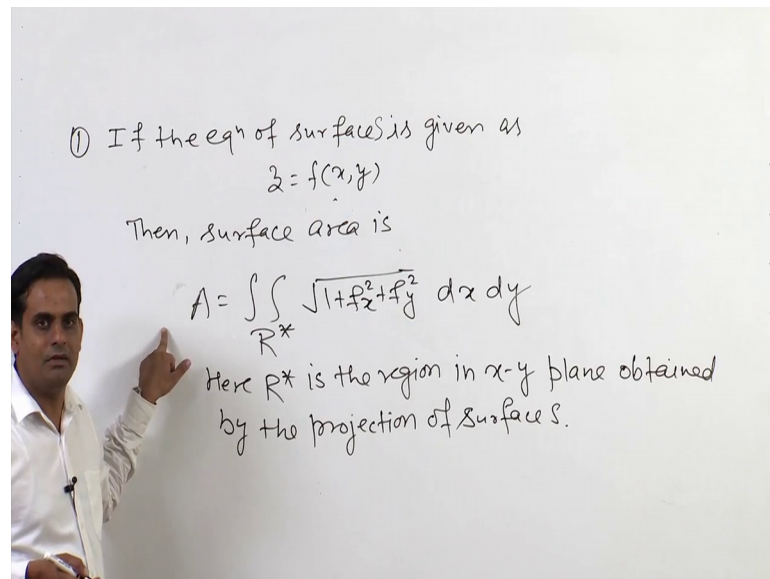 ① If the eqⁿ of surface S is given as
z = f(x,y)
Then, surface area is
A = ∫∫ √1+f_x²+f_y² dx dy
R*
Here R* is the region in x-y plane obtained
by the projection of surface S.